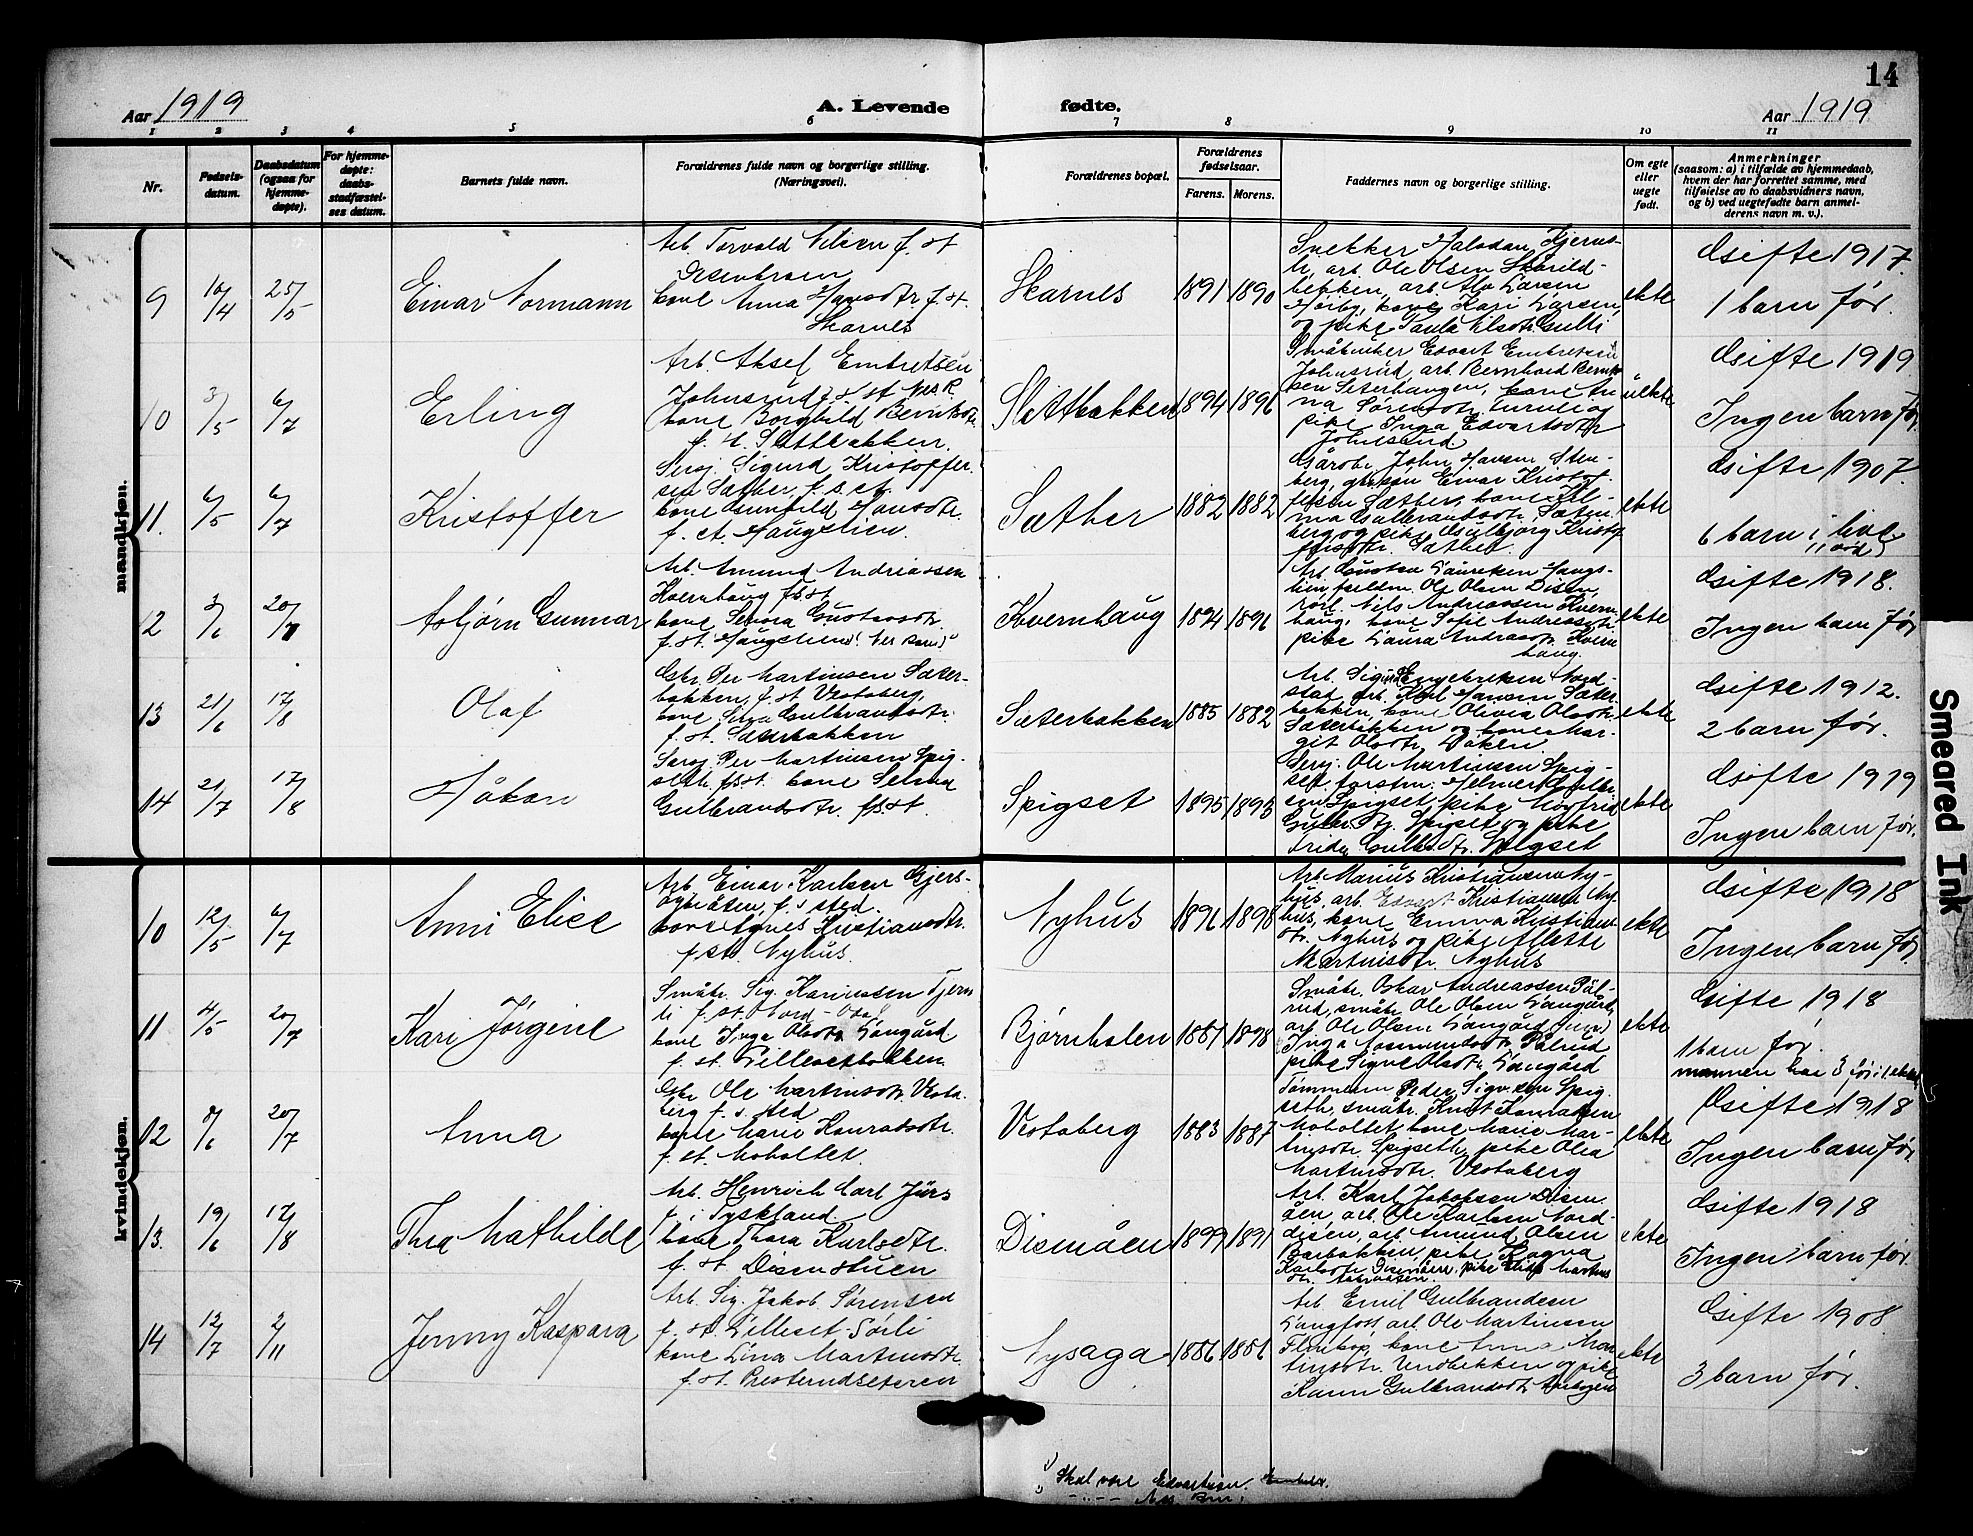 14
Aar 1919
A. Levende
fødte.
Aar 1919
1 2 3 4 5 6 7 8 9 10 11
Nr.
Fødsels-
datum.
Daabsdatum
(ogsaa for
hjemme-
døpte).
For hjemme-
døpte:
daabs-
stadfæstel-
ses datum.
Barnets fulde navn.
Forældrenes fulde navn og borgerlige stilling.
(Næringsvei).
Forældrenes bopæl.
Forældrenes
fødselsaar.
Farens. Morens.
Faddernes navn og borgerlige stilling.
Om egte
eller
uegte
født.
Anmerkninger
(saasom: a) i tilfælde av hjemmedaab,
hvem der har forrettet samme, med
tilføielse av to daabsvidners navn,
og b) ved uegtefødte barn anmel-
derens navn m. v.).
mandkjøn.
9 10/4 25/5 Einar Normann
Arb. Torvald Nilsen f. st
Disenbraaten
kone Anna Hansdtr. f. st.
Skarnes
Skarnes 1891 1890
Snekker Halvdan Kjerns-
li, arb. Ole Olsen
bekken, arb. Larsen
Høiby, kone Kari Larsen,
og pike Paula Nilsdtr.
ekte
Gifte 1917.
1 barn før.
10 3/5 6/7 Erling
Arb. Aksel Embretsen
Johnsrud f. st
kone Borghild Berntsdtr.
f. st. Slettbakken.
Slettbakken 1894 1896
Småbruker Edvart Embretsen
Johnsrud, arb. Bernhard
sen Seterhaugen, kone An
na Sørensdtr. og
pike Inga Edvartsdtr
Johnsrud
Gifte 1919
Ingen barn før.
11. 6/5 6/7 Kristoffer
Sersj. Sigurd Kristoffer-
sen Sæther, f. s. st.
kone Gunhild Hansdtr.
f. st. Haugstien.
Sæther 1882 1882
Gårdbr. John Hansen Sten-
berg, Einar Kristof-
fersen Sæther, kone Hil-
ma Gulbrandsdtr.
berg og pike Gulbjørg Kristof
fersdtr. Sæther
ekte
Gifte 1907.
6 barn i live
(1 død)
12 3/6 20/7 Asbjørn Gunnar
Arb. Amund Andreassen
Kvernhaug f. s. st
kone Senora Gustavsdtr.
f. st. Haugstien
Kvernhaug 1894 1896
Arb. Gustav Lauritsen Haugs-
tien, Ole Olsen Disen,
Nils Andreassen Kvern
haug, kone Sofie Andreasdtr.
pike Laura Andreasdtr. Kvern
haug.
ekte
Gifte 1918.
Ingen barn før
13 21/6 17/8 Olaf
Gbr. Per Martinsen Sæter-
bakken, f. st Vestaberg,
kone Gulbrandsdtr.
f. st. Sæterbakken
Sæterbakken 1885 1882
Arb. Sigurd Engebretsen Nord-
stad, arb. Karl Hansen Sæter
bakken, kone Olivia Olsdtr.
Sæterbakken og kone Mar-
git Olsdtr.
ekte
Gifte 1912.
2 barn før.
14 21/7 17/8 Håkon
Sersj. Per Martinsen Spig-
seth f. s. st. kone Selma
Gulbrandsdtr. f. s. st.
Spigset 1895 1895
Serj. Ole Martinsen Spig-
set, Helmer
Spigset, pike
Spigset og pike
Spigset
ekte
Gifte 1919
Ingen barn før.
kvindekjøn.
10 12/5 6/7 Anni Elise
Arb. Einar Karlsen Gjers-
øyeåsen, f. s sted.
kone Agnes Kristiansdtr.
f. st. Nyhus.
Nyhus 1896 1898
Arb. Marius Kristiansen Ny-
hus, arb. Edvart Kristiansen Ny
hus, kone Emma Kristians-
dtr. Nyhus og pike
Martinsdtr. Nyhus
ekte
Gifte 1918
Ingen barn før.
11 4/5 20/7 Kari Jørgine
Småbr. Sig. Karinssen Tjerns
li f. st. Nord-Odal
kone Inga Olsdtr. Langård
f. st. Lillesetbakken
Bjørnholen 1887 1898
Småbr. Oskar Andreassen Pål-
rud, småbr. Ole Olsen Langård,
arb. Ole Olsen Langård (jun.)
Inga Pålrud
pike Signe Olsdtr. Langård
ekte
Gifte 1918
1 barn før.
mannen har 3 før i 1. ekt.
12 8/6 20/7 Anna
Gbr. Ole Vesta-
berg f. s. sted
kone Marie Konradsdtr.
f. st. Moholtet.
Vestaberg 1883 1887
Tømmerm. Peder Sigvartsen Spig
seth, småbr. Knut Konradsen
Moholtet, kone Marie Mar-
tinsdtr. Spigseth, pike Olea
Martinsdtr. Vestaberg
ekte
Gifte 1918
Ingen barn før
13. 19/6 17/8 Thea Mathilde
Arb. Henrich Carl Jürs
f. i Tyskland
kone Thora Karlsdtr.
f. st Disenstuen
Disenåen 1899 1891
Arb. Karl Jakobsen Disen
åen, arb. Ole Karlsen Nord-
disen, arb. Amund Olsen
Barbakken, pike Ragna
Karlsdtr. Disenåen, pike
ekte
Gifte 1918
Ingen barn før.
14 12/7 2/11 Jenny Kaspara
Arb. Sig. Jakob. Sørensen
f. st. Lilleset Sørli
kone Lina Martinsdtr.
f. st. Presterudseteren
Nysaga 1886 1886
Arb Emil Gulbrandsen
Langfoss, arb. Ole Martinsen
kone Anna Mar
tinsdtr. Lundbekken og pike
Karen Gulbrandsdtr.
ekte
Gifte 1908
3 barn før.
Skal være Edvartsen.
Smeared Ink